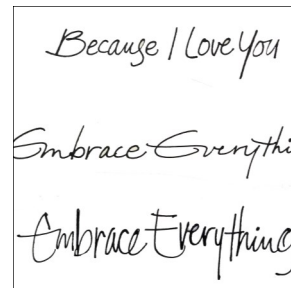 Because I Love You
Embrace Everythi
Embrace Everything